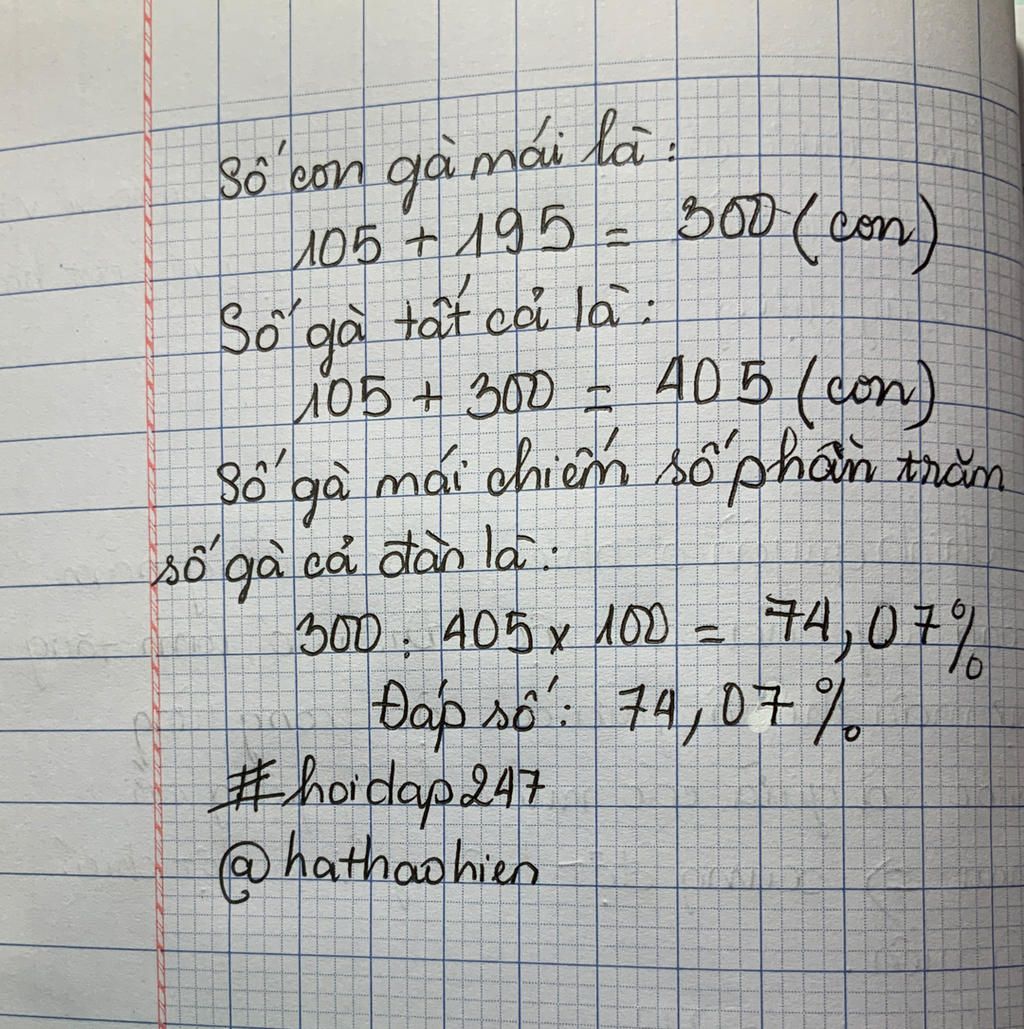 Số con gà mái là:
105 + 195 = 300 (con)
Số gà tất cả là:
105 + 300 = 405 (con)
Số gà mái chiếm số phần trăm
số gà cả đàn là:
300 : 405 x 100 = 74,07%
Đáp số: 74,07%
#hoidap247
@hathaohien